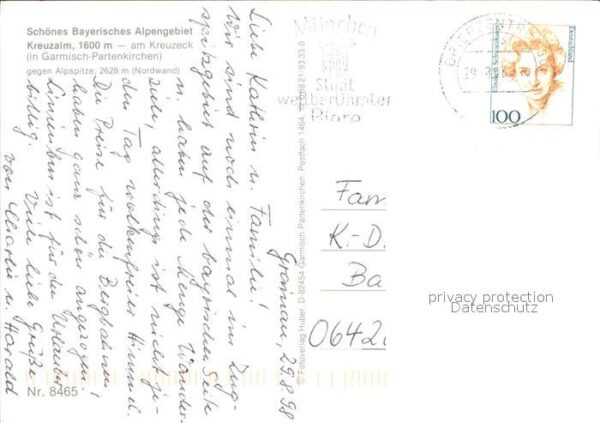 Schönes Bayerisches Alpengebiet
Kreuzalm, 1600 m — am Kreuzeck
(in Garmisch-Partenkirchen)
gegen Alpspitze, 2628 m (Nordwand)
Grainau, 29.8.98
Liebe Kathrin u. Familie!
Wir sind noch einmal im Zug-
spitzgebiet auf der bayrischen Seite
u. haben jede Menge Wander-
ziele, allerdings ist nicht je-
der Tag wolkenfreier Himmel.
Die Preise für die Bergbahnen
haben ganz schön angezogen!
Linienbus ist für den Urlauber
billig. Viele liebe Grüße
von Charlie u. Harald
Nr. 8465
© Fotoverlag Huber, D-82454 Garmisch-Partenkirchen, Postfach 1464,
München
Stadt
weltberühmter
Biere
Elisabeth Schwarzhaupt
Deutschland
100
Fam
K.-D.
Ba
0642
privacy protection
Datenschutz